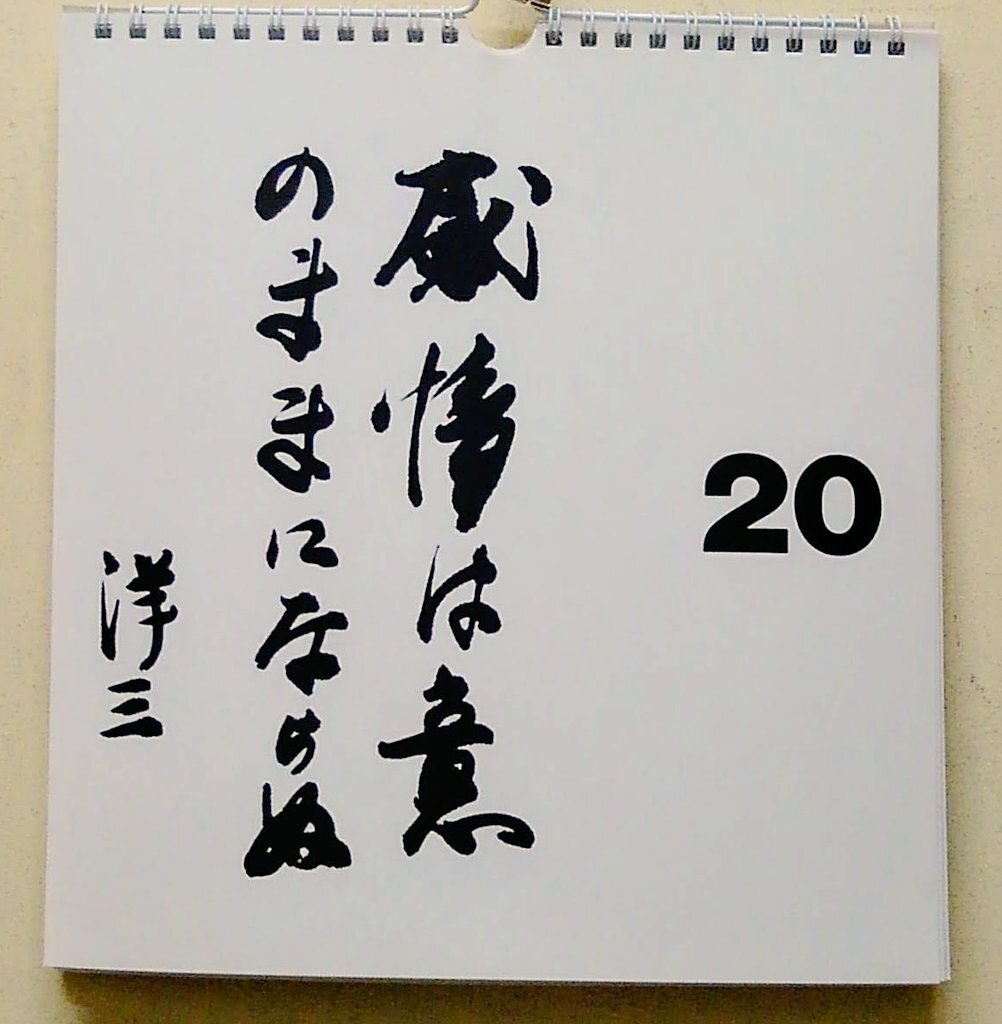 20
感情は意
のままにならぬ
洋三